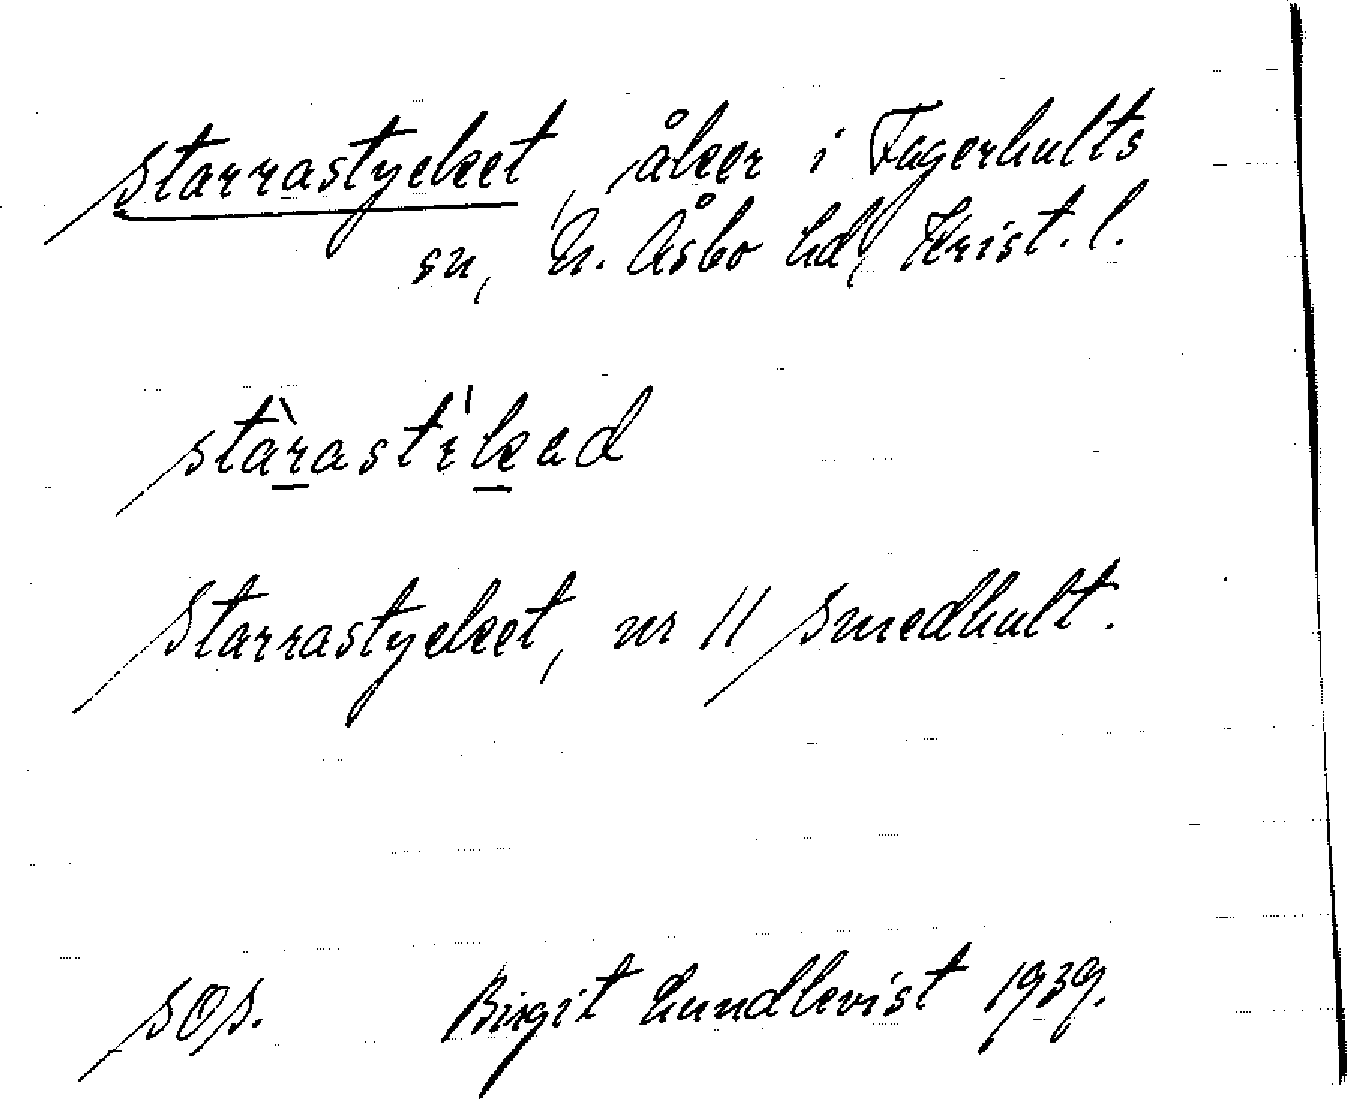 Starrastycket, åker i Fagerhults
sn, N. Åsbo hd, Krist. l.
Starrastycket, nr 11 Smedhult.
SOS. Birgit Lundkvist 1939.